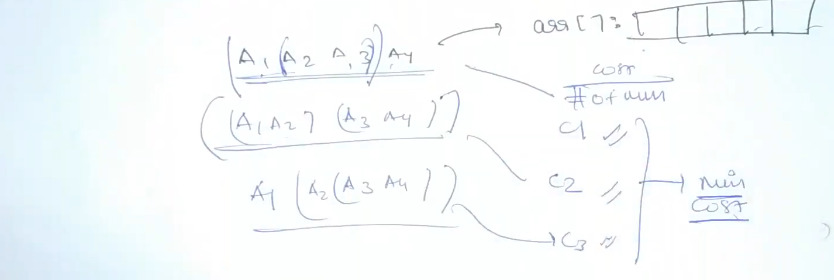 (A1 (A2 A3)) A4 arr[]:
cost
# of mul
((A1 A2) (A3 A4)) C1
A1 (A2 (A3 A4)) C2 min
cost
C3